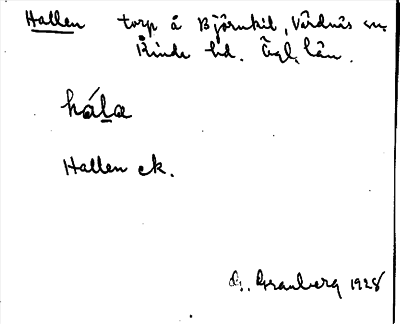 Hallen torp å Björnkil, Vårdnäs sn,
Kinda hd. Ögl. län.
hála
Hallen ek.
G. Granberg 1928